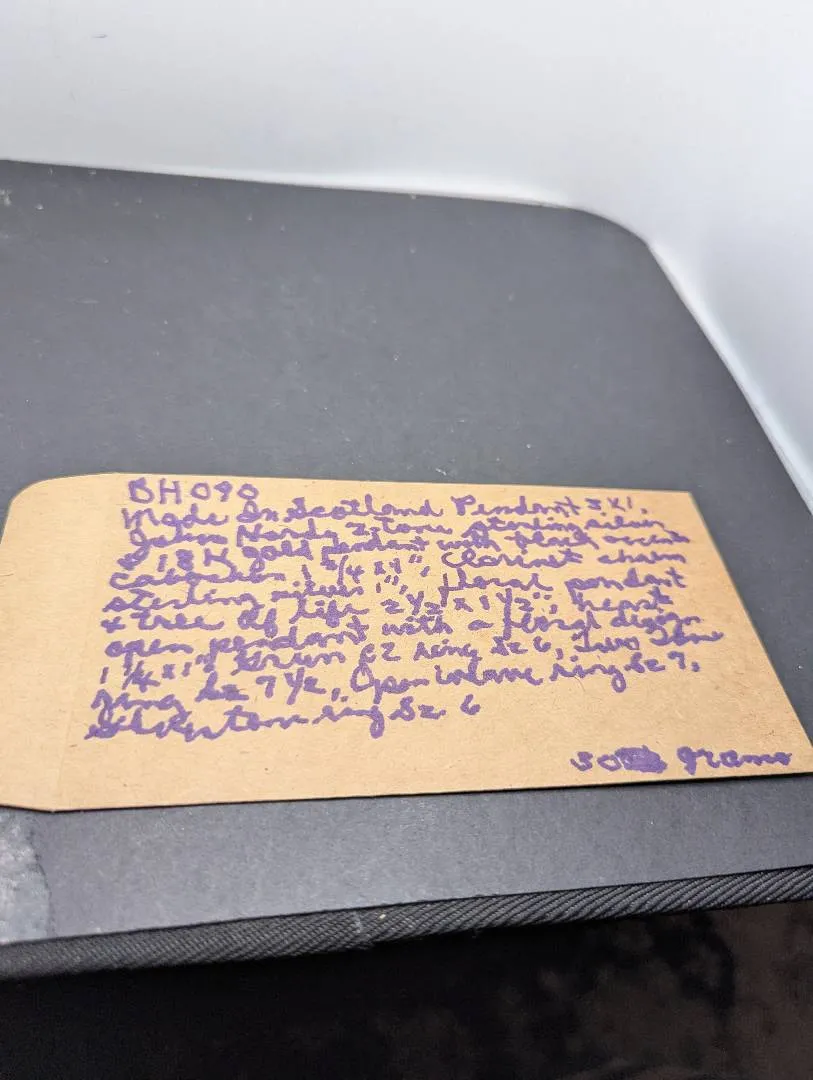 BH090
Made In Scotland Pendant 3 x 1,
John Hardy 2 tone sterling silver
& 18K gold pendant with black accent
Cabochon 1 3/4 x 1", Clarinet charm
sterling silver 1", floral pendant
+ tree of life 2 1/2 x 1 1/2", heart
open pendant with a floral design
1 1/4 x 1", Green CZ ring Sz 6, Two Tone
ring Sz 7 1/2, Open weave ring Sz 7,
ring Sz 6
50 grams